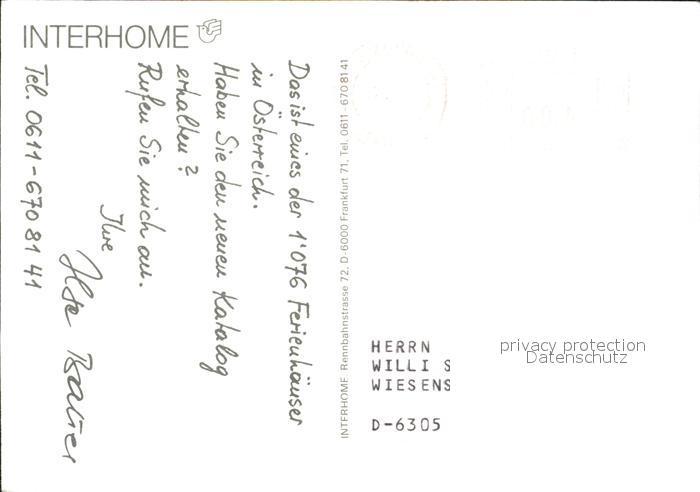 INTERHOME
Das ist eines der 1'076 Ferienhäuser
in Österreich.
Haben Sie den neuen Katalog
erhalten?
Rufen Sie mich an.
Ihre
Ilse
Tel. 0611-670 81 41
INTERHOME Rennbahnstrasse 72, D-6000 Frankfurt 71, Tel. 0611 - 6708141
HERRN
WILLI S
WIESENS
D-6305
privacy protection
Datenschutz